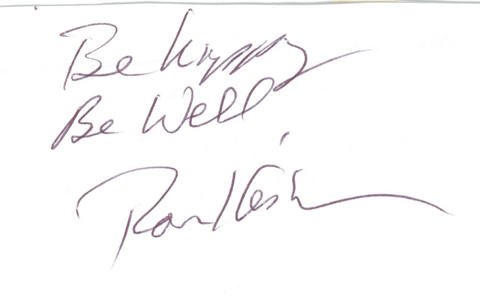 Be Happy
Be Well